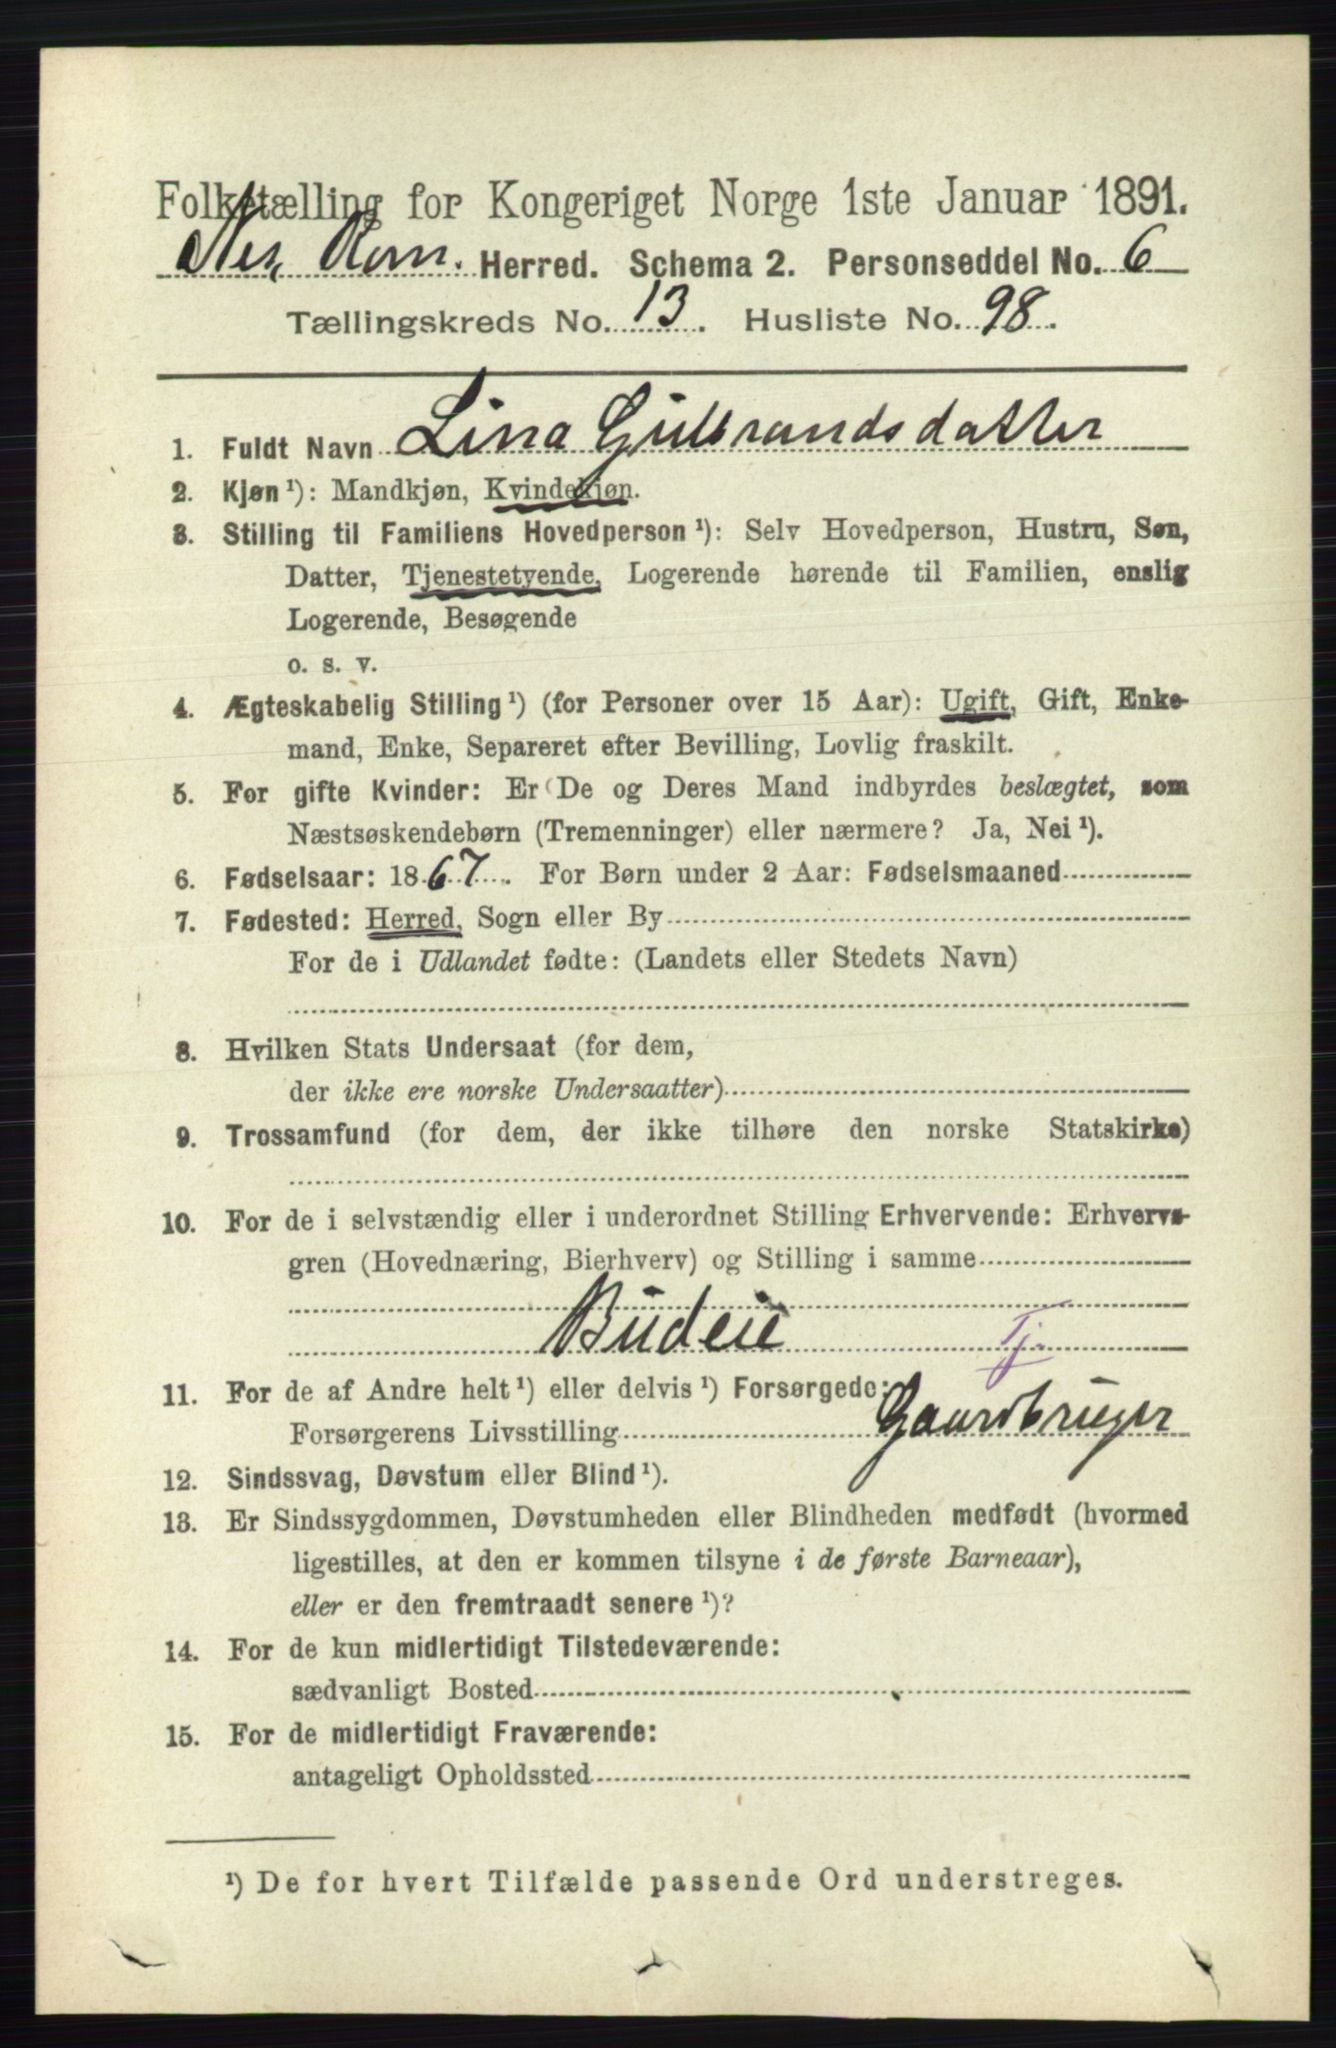 Folketælling for Kongeriget Norge 1ste Januar 1891.
Nes, Rom. Herred. Schema 2. Personseddel No. 6
Tællingskreds No. 13. Husliste No. 98.
1. Fuldt Navn Lina Gulbrandsdatter
2. Kjøn ¹): Mandkjøn, Kvindekjøn.
3. Stilling til Familiens Hovedperson ¹): Selv Hovedperson, Hustru, Søn,
Datter, Tjenestetyende, Logerende hørende til Familien, enslig
Logerende, Besøgende
o. s. v.
4. Ægteskabelig Stilling ¹) (for Personer over 15 Aar): Ugift, Gift, Enke-
mand, Enke, Separeret efter Bevilling, Lovlig fraskilt.
5. For gifte Kvinder: Er De og Deres Mand indbyrdes beslægtet, som
Næstsøskendebørn (Tremenninger) eller nærmere? Ja, Nei ¹).
6. Fødselsaar: 1867. For Børn under 2 Aar: Fødselsmaaned
7. Fødested: Herred, Sogn eller By
For de i Udlandet fødte: (Landets eller Stedets Navn)
8. Hvilken Stats Undersaat (for dem,
der ikke ere norske Undersaatter)
9. Trossamfund (for dem, der ikke tilhøre den norske Statskirke)
10. For de i selvstændig eller i underordnet Stilling Erhvervende: Erhvervs-
gren (Hovednæring, Bierhverv) og Stilling i samme
Budeie Tj.
11. For de af Andre helt ¹) eller delvis ¹) Forsørgede:
Forsørgerens Livsstilling Gaardbruger
12. Sindssvag, Døvstum eller Blind ¹).
13. Er Sindssygdommen, Døvstumheden eller Blindheden medfødt (hvormed
ligestilles, at den er kommen tilsyne i de første Barneaar),
eller er den fremtraadt senere ¹)?
14. For de kun midlertidigt Tilstedeværende:
sædvanligt Bosted
15. For de midlertidigt Fraværende:
antageligt Opholdssted
¹) De for hvert Tilfælde passende Ord understreges.